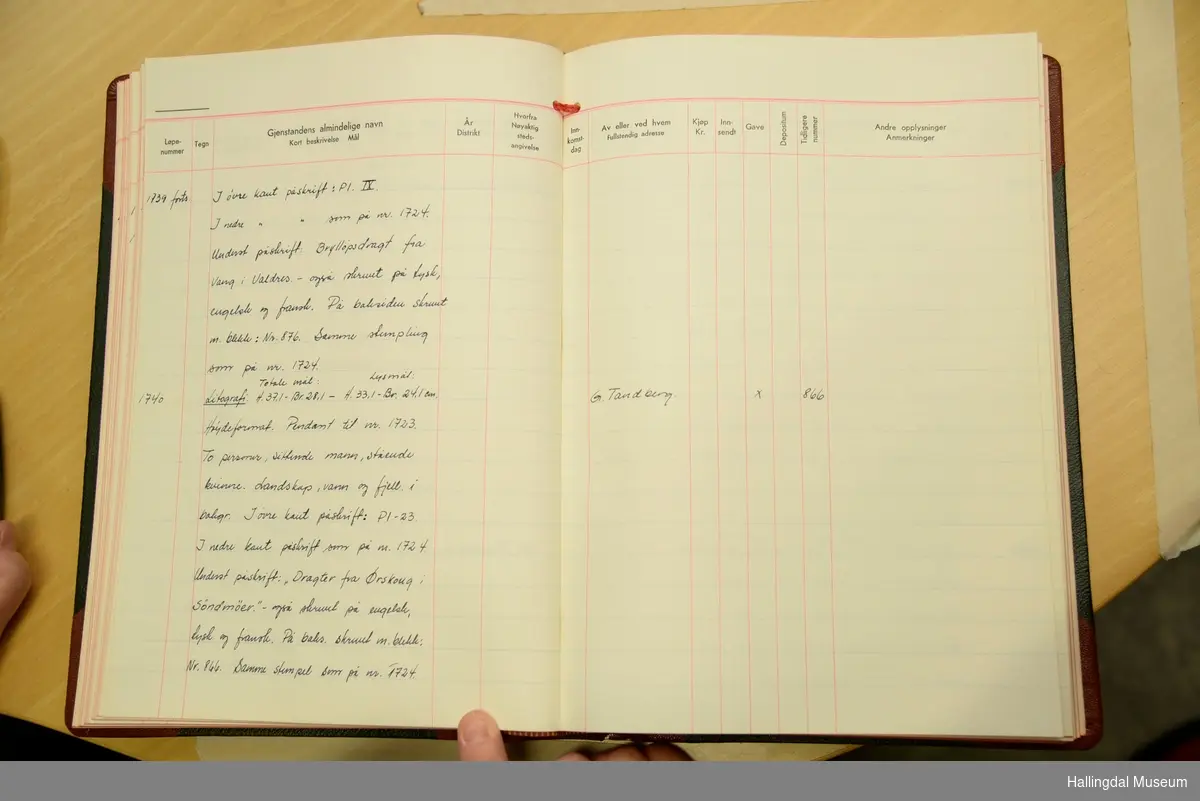 Løpe-
nummer
Tegn
Gjenstandens almindelige navn
Kort beskrivelse Mål
År
Distrikt
Hvorfra
Nøyaktig
steds-
angivelse
Inn-
komst-
dag
Av eller ved hvem
Fullstendig adresse
Kjøp
Kr.
Inn-
sendt
Gave
Depositum
Tidligere
nummer
Andre opplysninger
Anmerkninger
1739 forts. I övre kant påskrift: Pl. IV.
I nedre " " som på nr. 1724.
Underst påskrift: Bryllöpsdragt fra
Vang i Valdres. - også skrevet på tysk,
engelsk og fransk. På baksiden skrevet
m. blekk: Nr. 876. Samme stempling
som på nr. 1724.
Totale mål: Lysmål:
1740 Litografi. H. 37,1 - Br. 28,1 - H. 33,1 - Br. 24,1 cm. G. Tandberg. x 866
Höydeformat. Pendant til nr. 1723.
To personer, sittende mann, stående
kvinne. Landskap, vann og fjell i
bakgr. I övre kant påskrift: Pl-23.
I nedre kant påskrift som på nr. 1724
Underst påskrift: „Dragter fra Ørskoug i
Söndmöer." - også skrevet på engelsk,
tysk og fransk. På baks. skrevet m. blekk:
Nr. 866. Samme stempel som på nr. 1724.
Hallingdal Museum